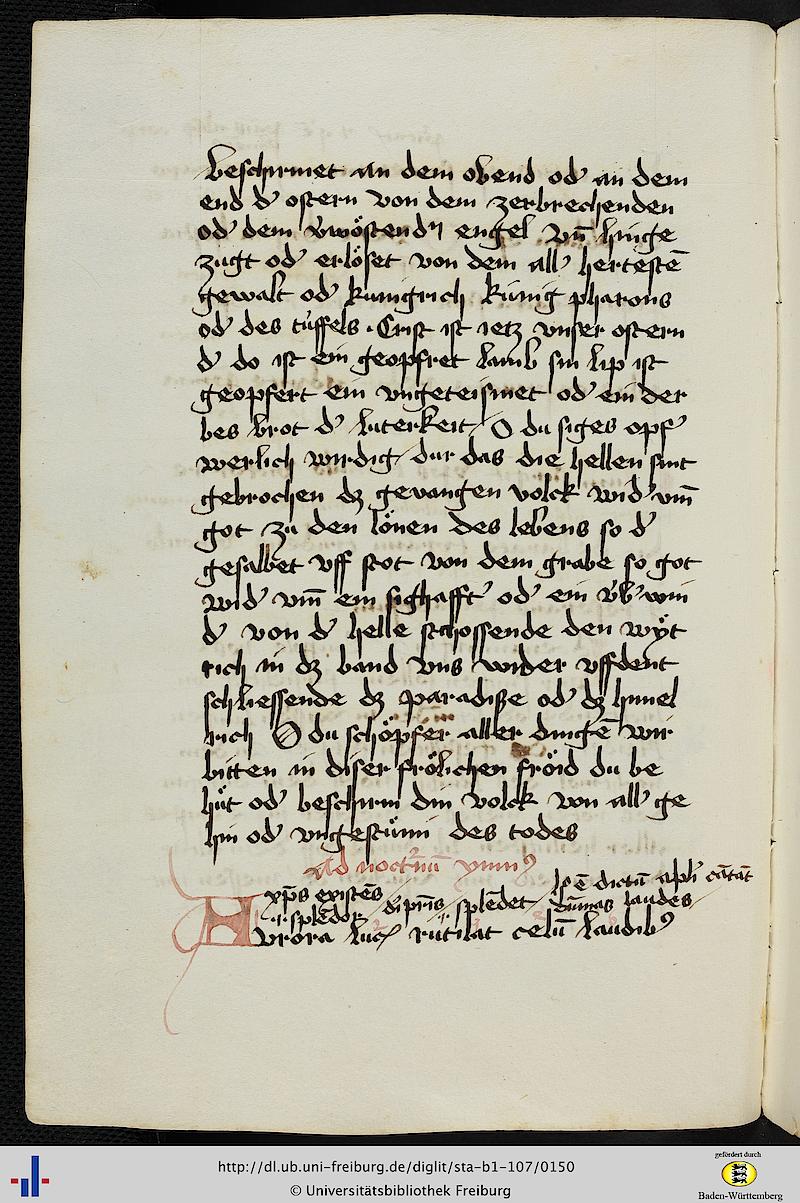 beschirmet an dem obend od' an dem
end d' ostern von dem zerbrechenden
od' dem v'wöstend'n engel vn̄ hinge
zugt od' erlöset von dem all' hertestē
gewalt od' kunigrich künig pharons
od' des tüffels. Crist ist ietz vnser ostern
d' do ist ein geopfret lamb sin lip ist
geopfert ein vngeteismet od' ein der
bes brot d' luterkeit / O du siges opf'
werlich wirdig / dur das die hellen sint
gebrochen dz gevangen volck wid' vm̄
got zu den lönen des lebens so d'
gesalbet vff stot von dem grabe so got
wid' vm̄ ein sighafft' od' ein v'b'win
d' von d' helle sthossende den wÿt
rich in dz band vns wider vffdent
schliessende dz paradiße od' dz himel
rich O du schöpfer aller dingē wir
bitten in diser frölichen fröid du be
hüt od' beschirm din volck von all' ge
hin od' vngestümi des todes
Ad noct'nū ymn9
xp̄s existēs / lo ē dictū apl'i cātāt
splēdor / di pr̄is / splēdet / diuinas laudes
Aurora luc' rutilat celū laudib9
http://dl.ub.uni-freiburg.de/diglit/sta-b1-107/0150
© Universitätsbibliothek Freiburg
gefördert durch
Baden-Württemberg